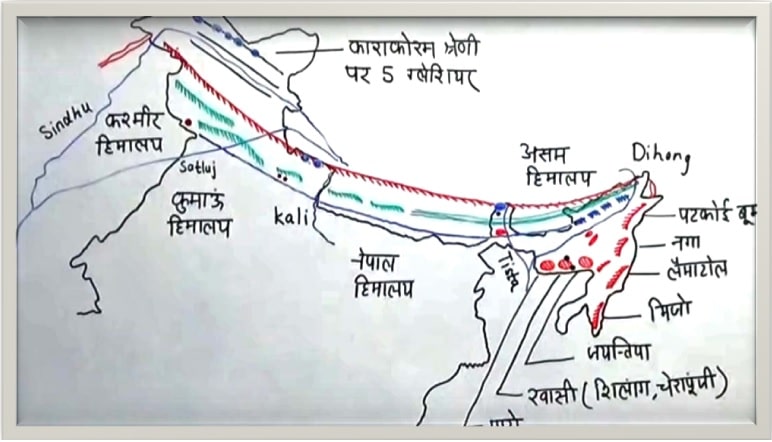 काराकोरम श्रेणी
पर 5 ग्लेशियर
Sindhu
कश्मीर
हिमालय
Satluj
कुमाऊं
हिमालय
Kali
नेपाल
हिमालय
असम
हिमालय
Dihong
Tista
पटकोई बूम
नगा
लैमाटोल
मिजो
जयन्तिया
खासी (शिलांग, चेरापूंजी)